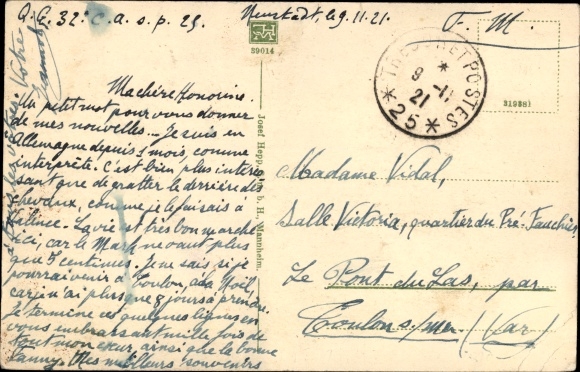 Q. G. 32e C. A. S. p. 25. Neustadt, le 9.11.21.
F. M.
59014
Ma chère Honorine.
Un petit mot pour vous donner
de mes nouvelles... Je suis en
Allemagne depuis 1 mois, comme
interprète. C'est bien plus intéres
sant que de gratter le derrière des
chevaux, comme je le faisais à
La vie est très bon marché
ici, car le Mark ne vaut plus
que 5 centimes. Je ne sais si je
pourrai venir à Toulon, à la Noël
car je n'ai plus que 8 jours à prendre.
Je termine ces quelques lignes en
vous embrassant mille fois de
tout mon cœur, ainsi que la bonne
Fanny. Mes meilleurs souvenirs
Votre
Josef Hepp, G. m. b. H., Mannheim.
TRESOR ET POSTES
*
9 -11
21
* 25 *
31938)
Madame Vidal,
Salle Victoria, quartier du Pré-Fauchier
Le Pont du Las, par
Toulon s/mer (Var)